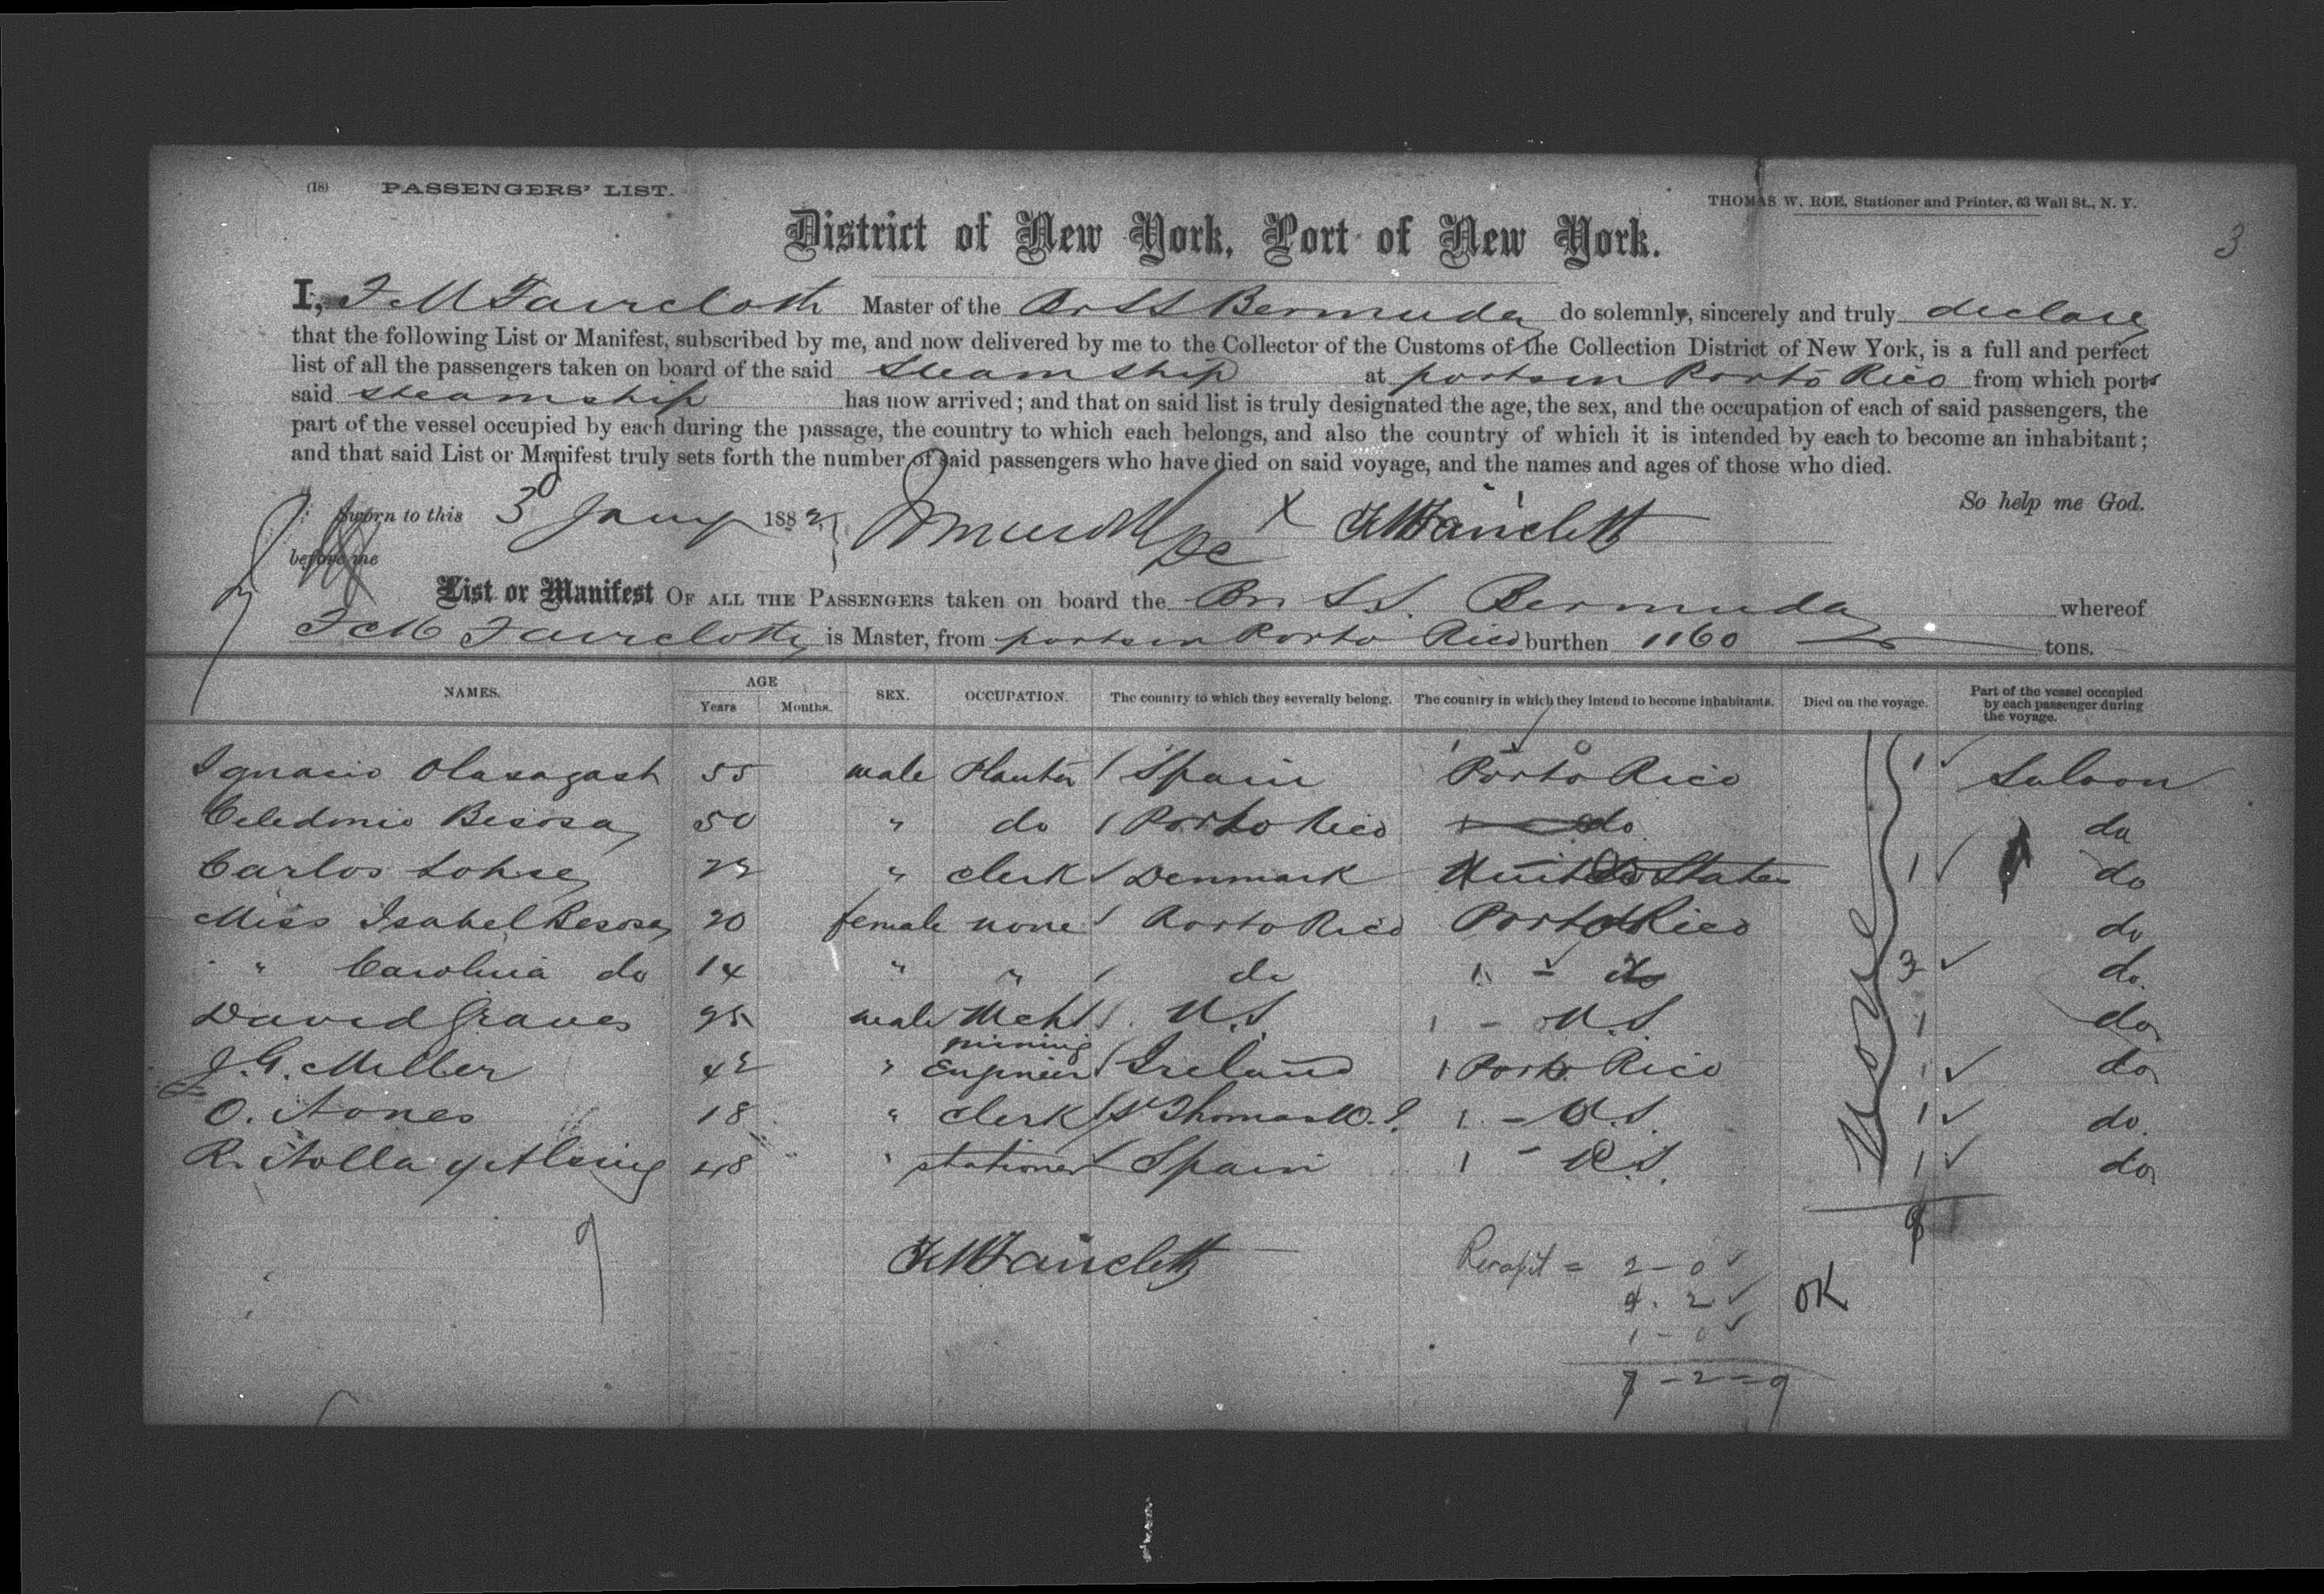 (18) PASSENGERS' LIST.
THOMAS W. ROE, Stationer and Printer, 63 Wall St., N. Y.
3
District of New York, Port of New York.
I, F M Faircloth Master of the Br SS Bermuda do solemnly, sincerely and truly declare
that the following List or Manifest, subscribed by me, and now delivered by me to the Collector of the Customs of the Collection District of New York, is a full and perfect
list of all the passengers taken on board of the said Steam ship at ports in Porto Rico from which ports
said steamship has now arrived; and that on said list is truly designated the age, the sex, and the occupation of each of said passengers, the
part of the vessel occupied by each during the passage, the country to which each belongs, and also the country of which it is intended by each to become an inhabitant;
and that said List or Manifest truly sets forth the number of said passengers who have died on said voyage, and the names and ages of those who died.
So help me God.
Sworn to this 3d Jany 1882 X
before me
List or Manifest OF ALL THE PASSENGERS taken on board the Br. S.S. Bermuda whereof
F M Faircloth is Master, from ports in Porto Rico burthen 1160 tons.
NAMES. AGE Years Months. SEX. OCCUPATION. The country to which they severally belong. The country in which they intend to become inhabitants. Died on the voyage. Part of the vessel occupied by each passenger during the voyage.
Ignacio Olasagast 55 male Planter Spain Porto Rico 1 Saloon
Celedonio Besosa 50 " do Porto Rico do do
Carlos Lohse " clerk Denmark United States 1 do
Miss Isabel Besosa 20 female none Porto Rico Porto Rico do
" Carolina do 14 " " do do 3 do
David Graves male Mcht U.S. U.S. 1 do
J. G. Miller 42 " mining Engineer Ireland Porto Rico 1 do
O. Nones 18 " clerk St Thomas W.I. U.S. 1 do.
R. 48 " stationer Spain U.S. 1 do
None
9
9
2 - 0
2
OK
1 - 0
7 - 2 = 9